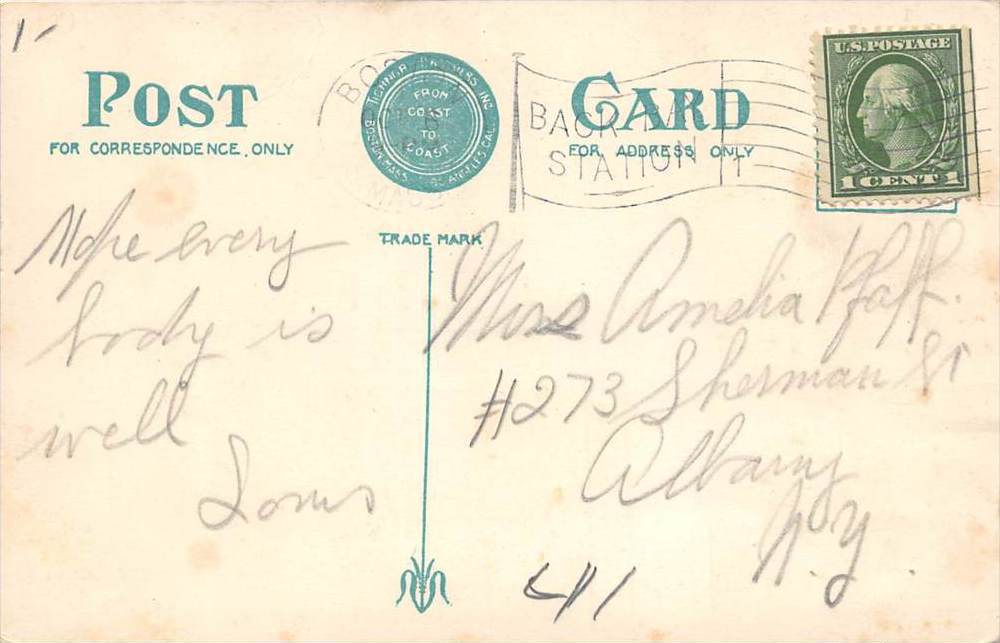 1-
POST CARD
FOR CORRESPONDENCE ONLY
FOR ADDRESS ONLY
TICHNOR BROTHERS INC.
BOSTON, MASS. LOS ANGELES, CAL.
FROM
COAST
TO
COAST
TRADE MARK
BACK BAY
STATION
MASS
U.S. POSTAGE
1 CENT 1
Hope every
body is
well
Louis
Miss Amelia Pfaff.
#273 Sherman St
Albany
N.Y.